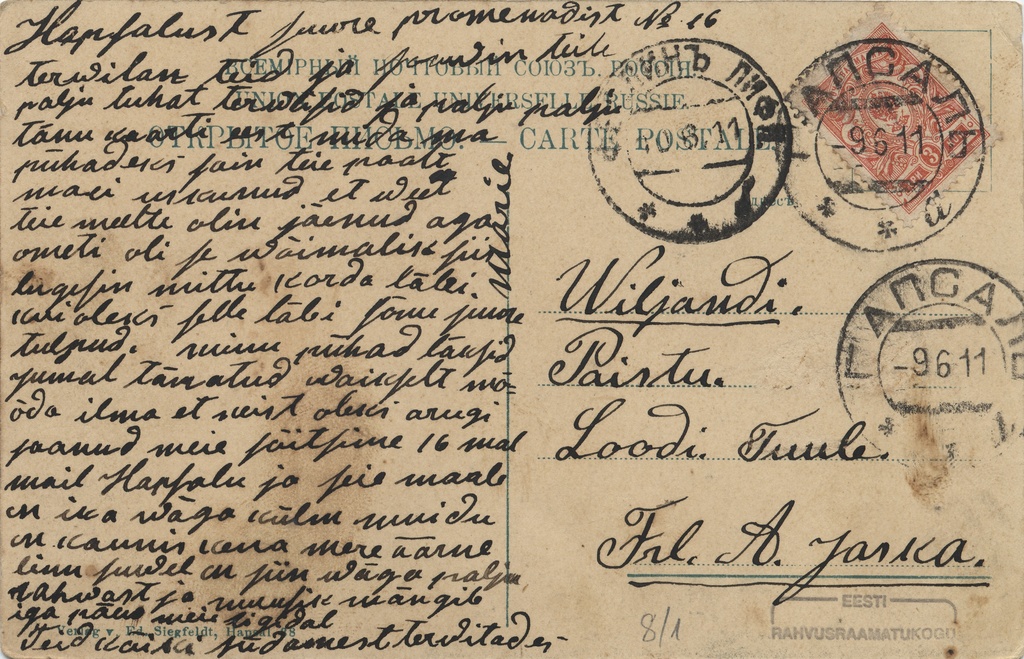 Hapsalust suure promenadist № 16
terwilan teid ja soowin teile
palju tuhat terwisid ja palju palju
tänu kaarti eest mida ma
pühadeks sain teie poolt
maei uskunud et weel
teie meelde olin jäenud aga
ometi oli se wõimalik siis
lugesin mittu korda läbi
kui oleks selle läbi Sõnu juure
tulnud. minu pühad läksid
jumal tänatud waikselt mö-
öda ilma et neist oleks arugi
saanud meie sõitsime 16 mal
mail Hapsalu ja seie maale
on ika wäga külm muidu
on kaunis kena mere äärne
linn suwel on siin wäga palju
rahwast ja muusik mängib
iga päew meie ligidal
Teid kaiki südamest terwitades
Marie
ВСЕМІРНЫЙ ПОЧТОВЫЙ СОЮЗЪ. РОССІЯ.
UNION POSTALE UNIVERSELLE. RUSSIE.
ОТКРЫТОЕ ПИСЬМО. — CARTE POSTALE
10.6.11
ГАПСАЛЬ
-9 6 11
а
Адресъ
ГАПСАЛЬ
-9 6 11
Wiljandi.
Paistu.
Loodi. Tuule.
Frl. A. Jaska.
Verlag v. Ed. Siegfeldt, Hapsal
8/1
EESTI
RAHVUSRAAMATUKOGU